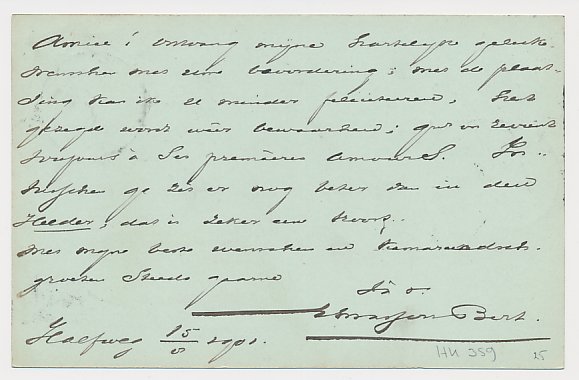 Amice! Ontvang mijne hartelijke geluk-
wenschen met uwe bevordering; met de plaat-
sing kan ik U minder feliciteeren, het
gezegde wordt weer bewaarheid; qu'on revient
toujours à ses premières amours.
ge zes er nog beter dan in den
Helder, dat is zeker een troost..
Met mijne beste wenschen en kameraadsch.
groeten Steeds gaarne
Bert.
Halfweg 15/8 1901.
HK 389
25